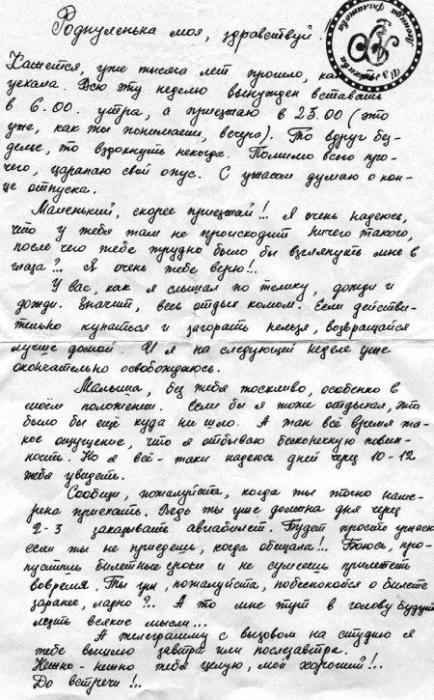 Роднуленька моя, здравствуй.
Кажется, уже тысяча лет прошло, как
уехала. Всю эту неделю вынужден вставать
в 6.00. утра, а приезжаю в 23.00 (это
уже, как ты понимаешь, вечера). То вдруг без-
делье, то вздохнуть некогда. Помимо всего про-
чего, царапаю свой опус. С ужасом думаю о кон-
це отпуска.
Маленький, скорее приезжай!! Я очень надеюсь,
что у тебя там не происходит ничего такого,
после чего тебе трудно было бы взглянуть мне в
глаза?.. Я очень тебе верю!..
У вас, как я слышал по телику, дожди и
дожди. Значит, весь отдых комом. Если действи-
тельно купаться и загорать нельзя, возвращайся
лучше домой. И я на следующей неделе уже
окончательно освобождаюсь.
Малыша, без тебя тоскливо, особенно в
моём положении. Если бы я тоже отдыхал, это
было бы ещё куда ни шло. А так всё время та-
кое ощущение, что я отбываю бесконечную повин-
ность. Но я всё-таки надеюсь дней через 10-12
тебя увидеть.
Сообщи, пожалуйста, когда ты точно наме-
рена приехать. Ведь ты уже должна дня через
2-3 заказывать авиабилет. Будет просто ужасно
если ты не приедешь, когда обещала!.. Боюсь, про-
пустишь билетные сроки и не сумеешь прилететь
вовремя. Ты уж, пожалуйста, побеспокойся о билете
заранее, ладно?.. А то мне тут в голову будут
лезть всякие мысли...
А телеграмму с вызовом на студию я
тебе вышлю завтра или послезавтра.
Нежно-нежно тебя целую, мой хороший!..
До встречи!..